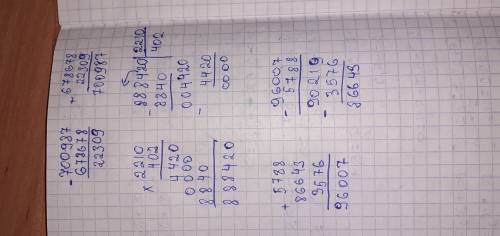 - 700987
678678
22309
+ 678678
22309
700987
x 2210
402
4420
0000
8840
888420
- 888420 | 2210
8840 | 402
004420
- 4420
0000
+ 5788
86643
3576
96007
- 96007
5788
- 90219
3576
86643